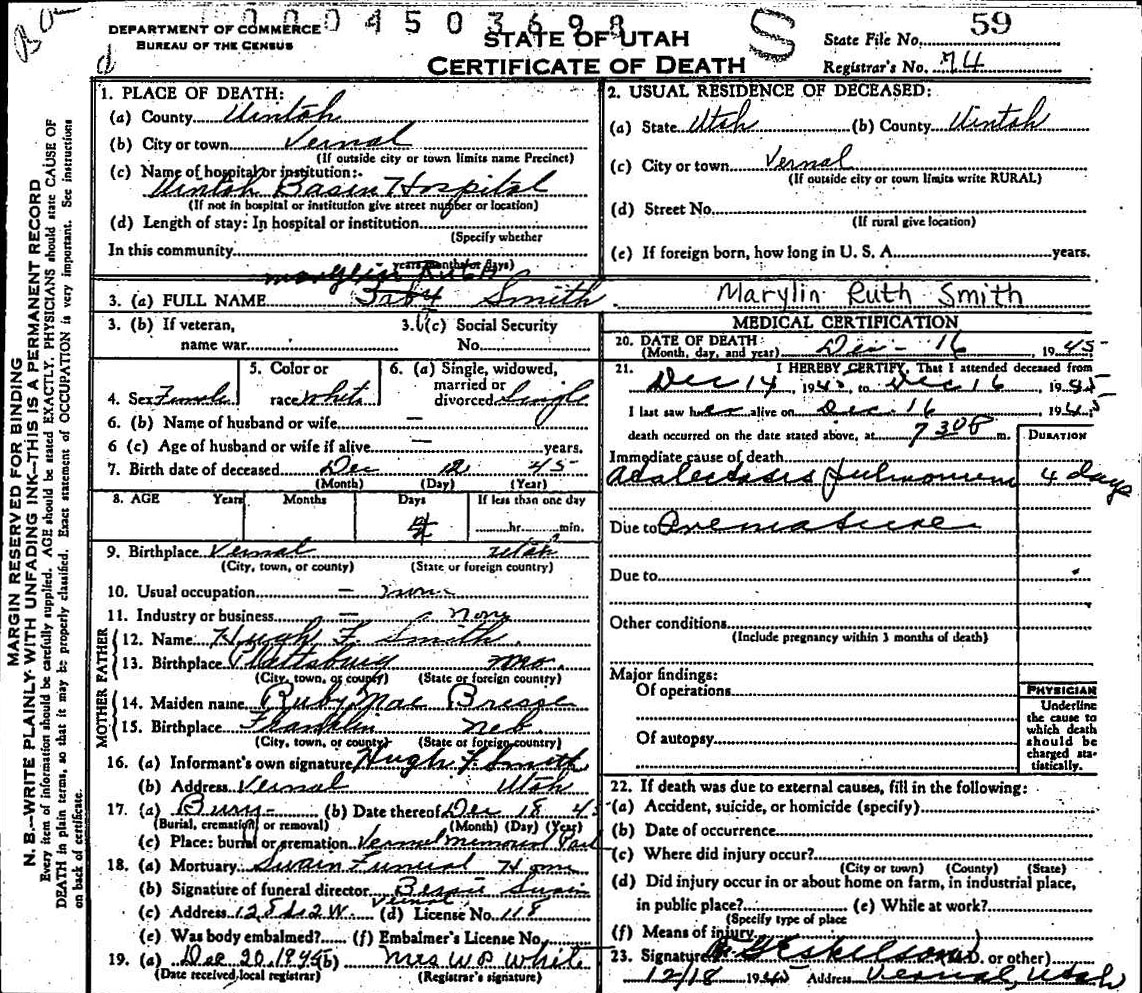 0000450369 8
DEPARTMENT OF COMMERCE
BUREAU OF THE CENSUS
STATE OF UTAH
CERTIFICATE OF DEATH
S
State File No. 59
Registrar's No. 74
MARGIN RESERVED FOR BINDING
N. B.—WRITE PLAINLY WITH UNFADING INK—THIS IS A PERMANENT RECORD
Every item of information should be carefully supplied. AGE should be stated EXACTLY. PHYSICIANS should state CAUSE OF
DEATH in plain terms, so that it may be properly classified. Exact statement of OCCUPATION is very important. See instructions
on back of certificate.
1. PLACE OF DEATH:
(a) County Uintah
(b) City or town Vernal
(If outside city or town limits name Precinct)
(c) Name of hospital or institution:
Uintah Basin Hospital
(If not in hospital or institution give street number or location)
(d) Length of stay: In hospital or institution
(Specify whether
In this community
years, months or days)
2. USUAL RESIDENCE OF DECEASED:
(a) State Utah (b) County Uintah
(c) City or town Vernal
(If outside city or town limits write RURAL)
(d) Street No.
(If rural give location)
(e) If foreign born, how long in U. S. A. years.
Marylin Ruth
3. (a) FULL NAME Baby Smith Marylin Ruth Smith
3. (b) If veteran, name war
3. (c) Social Security No.
4. Sex Female
5. Color or race White
6. (a) Single, widowed, married or divorced Single
6. (b) Name of husband or wife —
6 (c) Age of husband or wife if alive — years.
7. Birth date of deceased Dec 12 45
(Month) (Day) (Year)
8. AGE Years Months Days If less than one day
4 hr. min.
9. Birthplace Vernal Utah
(City, town, or county) (State or foreign country)
10. Usual occupation — none
11. Industry or business — none
FATHER
12. Name Hugh F. Smith
13. Birthplace Plattsburg Mo.
(City, town, or county) (State or foreign country)
MOTHER
14. Maiden name Ruby Mae
15. Birthplace Franklin Neb
(City, town, or county) (State or foreign country)
16. (a) Informant's own signature Hugh F Smith
(b) Address Vernal Utah
17. (a) Bury (b) Date thereof Dec 18 45
(Burial, cremation, or removal) (Month) (Day) (Year)
(c) Place: burial or cremation Vernal Memorial Park
18. (a) Mortuary Swain Funeral Home
(b) Signature of funeral director Bessie Swain
Vernal
(c) Address (d) License No. 118
(e) Was body embalmed? (f) Embalmer's License No.
19. (a) Dec 20 1945 (b) Mrs W P White
(Date received local registrar) (Registrar's signature)
MEDICAL CERTIFICATION
20. DATE OF DEATH: Dec - 16, 1945
(Month, day, and year)
21. I HEREBY CERTIFY, That I attended deceased from
Dec 14, 1945 to Dec 16 1945
I last saw her alive on Dec. 16, 1945
death occurred on the date stated above, at 7 30 P m.
DURATION
Immediate cause of death
4 days
Due to Premature
Due to
Other conditions
(Include pregnancy within 3 months of death)
Major findings:
Of operations
Of autopsy
PHYSICIAN
Underline
the cause to
which death
should be
charged sta-
tistically.
22. If death was due to external causes, fill in the following:
(a) Accident, suicide, or homicide (specify)
(b) Date of occurrence
(c) Where did injury occur?
(City or town) (County) (State)
(d) Did injury occur in or about home on farm, in industrial place,
in public place? (e) While at work?
(Specify type of place
(f) Means of injury
23. Signature Eskelson or other)
12/18 1945 Address Vernal, Utah